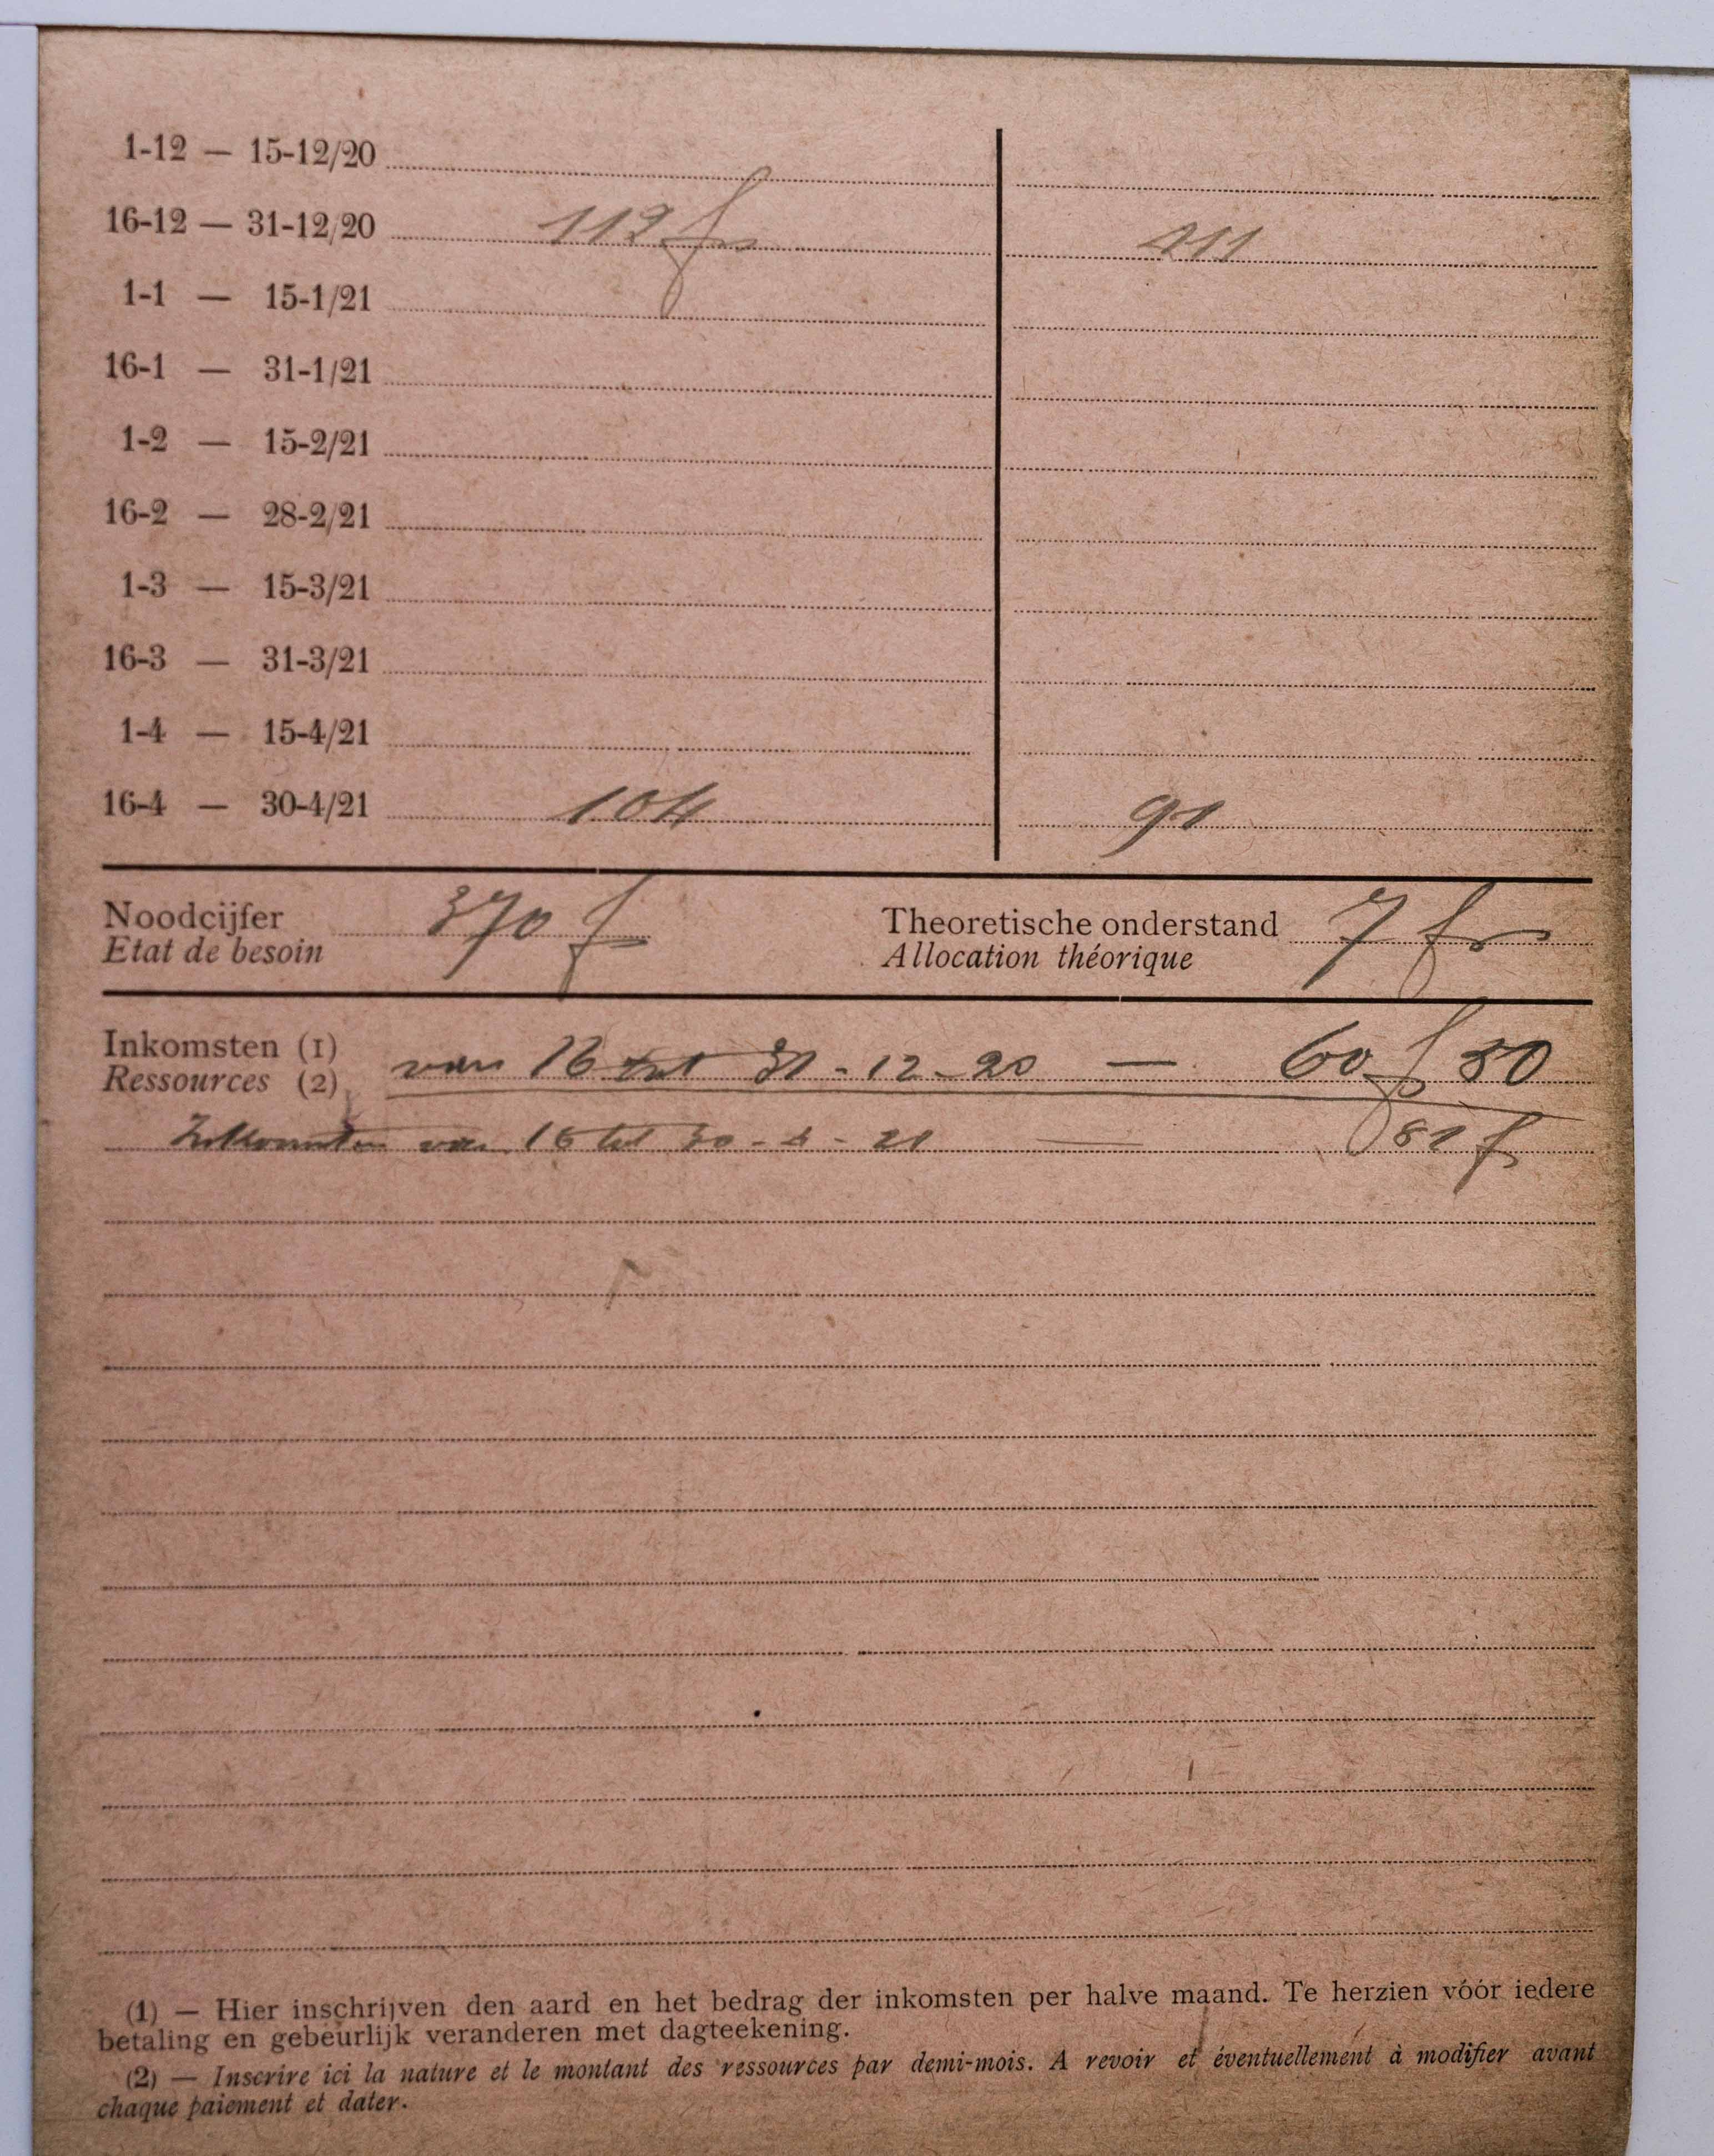 1-12 — 15-12/20
16-12 — 31-12/20 112 fr 211
1-1 — 15-1/21
16-1 — 31-1/21
1-2 — 15-2/21
16-2 — 28-2/21
1-3 — 15-3/21
16-3 — 31-3/21
1-4 — 15-4/21
16-4 — 30-4/21 104 91
Noodcijfer 370 f Theoretische onderstand 7 fr
Etat de besoin Allocation théorique
Inkomsten (1) van 16 tot 31-12-20 — 60 f 50
Ressources (2)
Inkomsten van 16 tot 30-4-21 — 81 f
(1) — Hier inschrijven den aard en het bedrag der inkomsten per halve maand. Te herzien vóór iedere
betaling en gebeurlijk veranderen met dagteekening.
(2) — Inscrire ici la nature et le montant des ressources par demi-mois. A revoir et éventuellement à modifier avant
chaque paiement et dater.